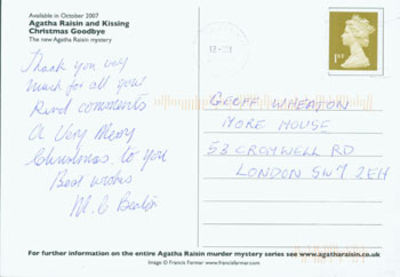 Available in October 2007
Agatha Raisin and Kissing
Christmas Goodbye
The new Agatha Raisin mystery
Thank you very
much for all your
kind comments
A Very Merry
Christmas to you
Best wishes
M. C Beaton
1ST
GEOFF WHEATON
MORE HOUSE
53 CROMWELL RD
LONDON SW7 2EH
For further information on the entire Agatha Raisin murder mystery series see www.agatharaisin.co.uk
Image © Francis Farmar www.francisfarmar.com